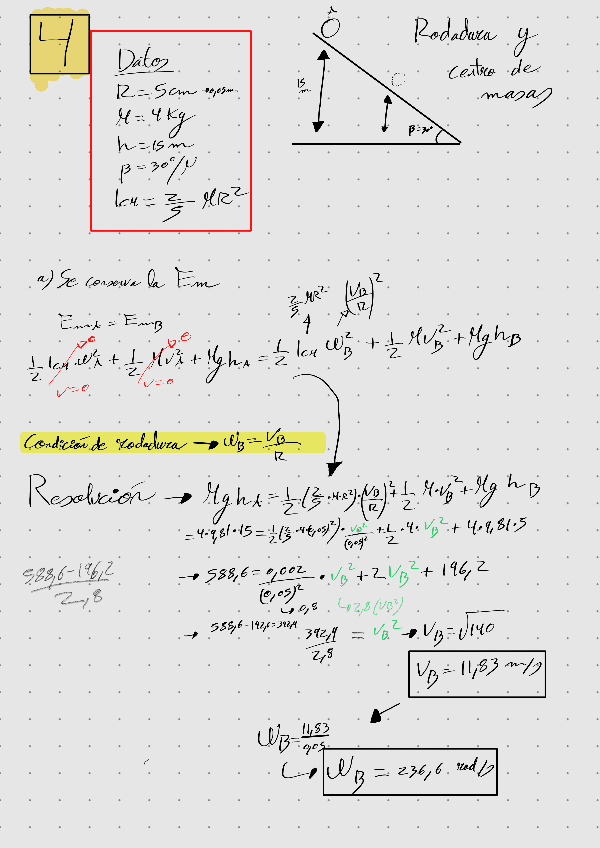 4
Datos
R = 5cm = 0,05m
M = 4 Kg
h = 15 m
β = 30°/N
Icm = 2/5 MR²
A
15 m
C
β = 30°
Rodadura y
centro de
masas
a) Se conserva la Em
EmA = EmB
2/5 MR² (VB/R)²
1/2 Icm ω²A + 1/2 MV²A + MghA = 1/2 Icm ωB² + 1/2 MVB² + MghB
0 0
v=0 v=0
Condición de rodadura → ωB = VB/R
Resolución → MghA = 1/2 · (2/5 · M·R²) · (VB/R)² + 1/2 M·VB² + Mg hB
= 4·9,81·15 = 1/2 (2/5 · 4·(0,05)²) · VB²/(0,05)² + 1/2 · 4 · VB² + 4·9,81·5
588,6-196,2/2,8
→ 588,6 = 0,002/(0,05)² · VB² + 2VB² + 196,2
↳ 0,8 ↳ 2,8 (VB²)
→ 588,6-192,6=392,4 392,4/2,8 = VB² → VB = √140
VB = 11,83 m/s
ωB = 11,83/0,05
↳ ωB = 236,6 rad/s